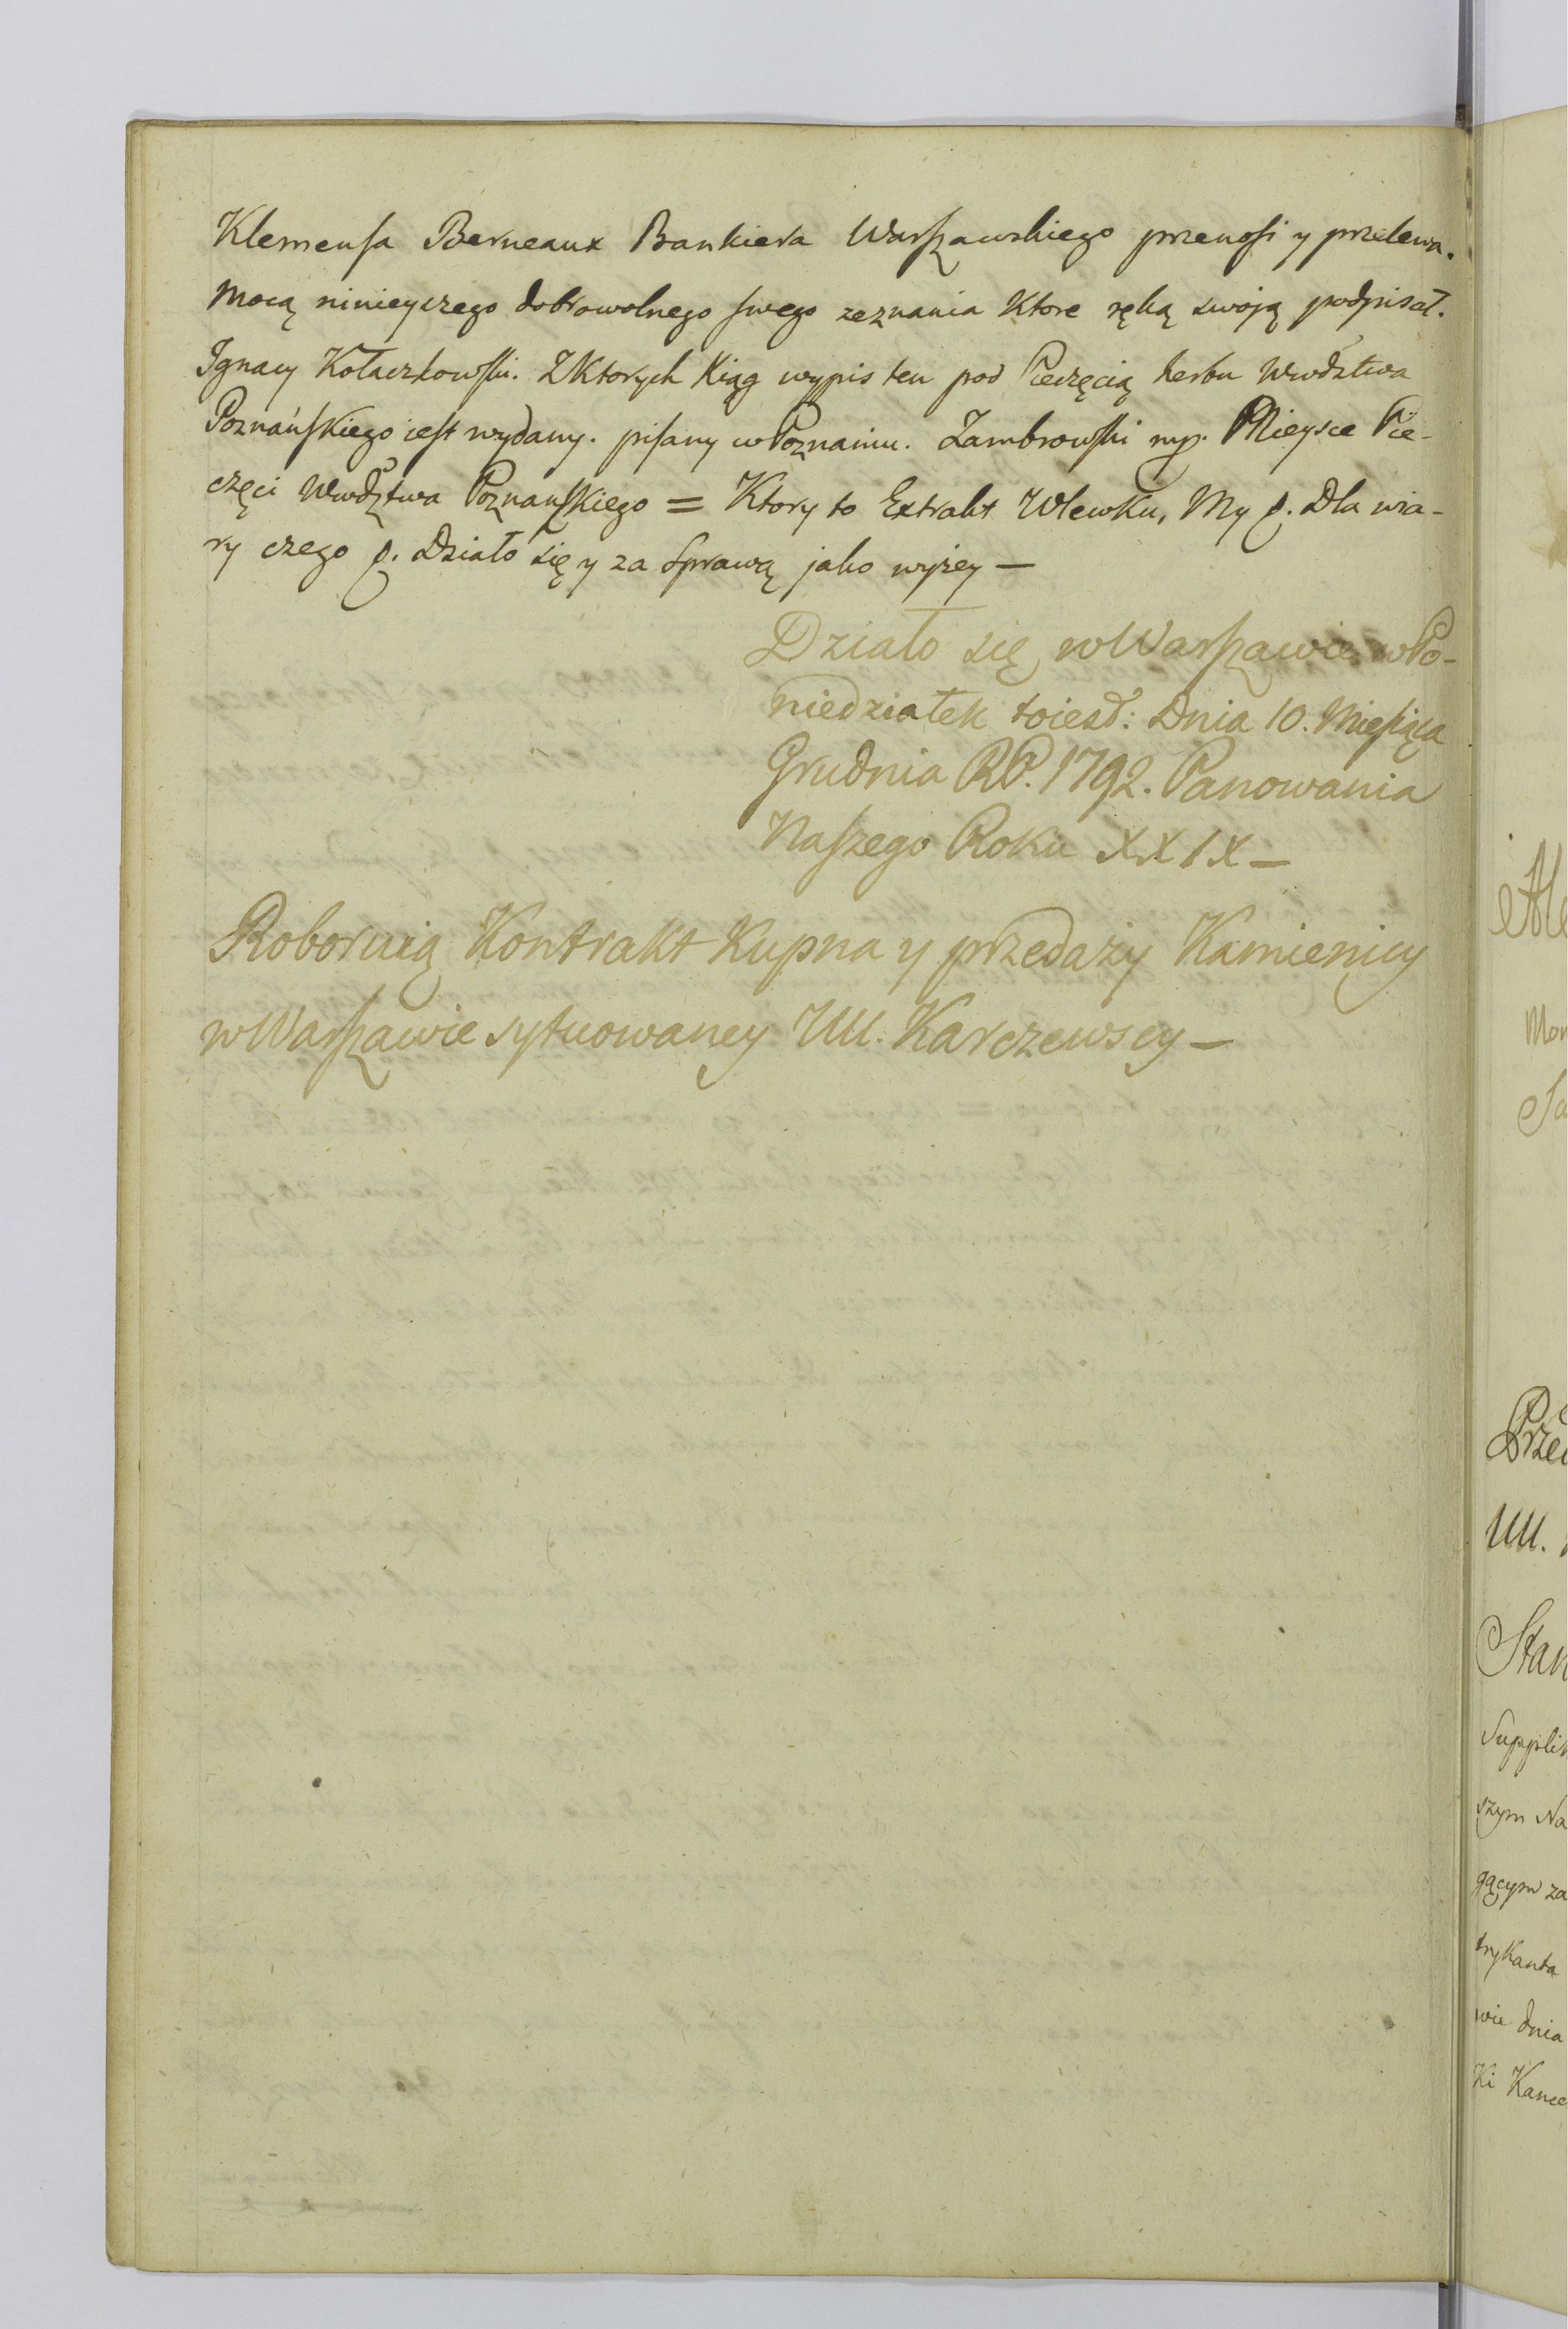 Klemensa Berneaux Bankiera Warszawskiego przenosi y przelewa.
Mocą ninieyszego dobrowolnego swego zeznania Ktore ręką swoją podpisał.
Ignacy Kołaczkowski. Z Ktorych Xiąg wypis ten pod Pieczęcią herbu Wwdztwa
Poznańskiego iest wydany. pisany w Poznaniu. Zambrowski mp. Mieysce Pie-
częci Wwdztwa Poznanskiego = Ktory to Extrakt Wlewku, My p. Dla wia-
ry czego p. Działo się y za Sprawą jako wyżey —
Działo się w Warszawie w Po-
niedziałek toiest: Dnia 10. Miesiąca
Grudnia RP. 1792. Panowania
Naszego Roku XXIX —
Roboruią Kontrakt Kupna y przedaży Kamienicy
w Warszawie sytuowaney UU. Karczewscy —
Prze
UU.
Stan
Supplik
szym Na
gącym za
trykanta
wie dnia
Ki Kance